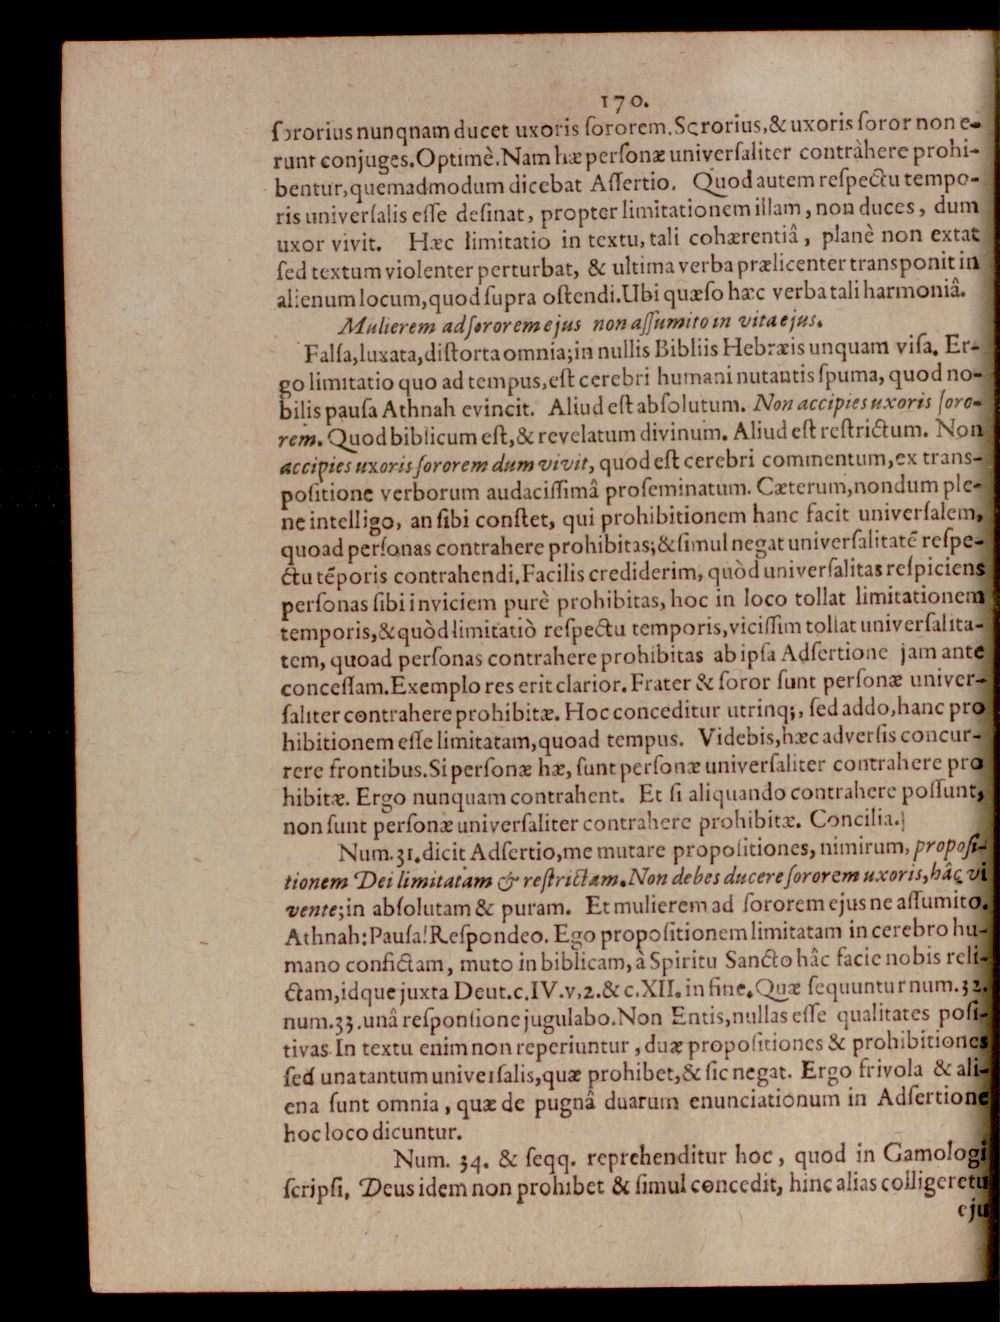 170.
ſororius nunqnam ducet uxoris ſororem. Sororius, & uxoris ſoror non e-
runt conjuges. Optimè. Nam hæ perſonæ univerſaliter contràhere prohi-
bentur, quemadmodum dicebat Aſſertio. Quod autem reſpectu tempo-
ris univerſalis eſſe deſinat, propter limitationem illam, non duces, dum
uxor vivit. Hæc limitatio in textu, tali cohærentiâ, planè non extat
ſed textum violenter perturbat, & ultima verba prælicenter transponit in
alienum locum, quod ſupra oſtendi. Ubi quæſo hæc verba tali harmoniâ.
Mulierem ad ſororem ejus non aſſumito in vita ejus.
Falſa, luxata, diſtorta omnia; in nullis Bibliis Hebræis unquam viſa. Er-
go limitatio quo ad tempus, eſt cerebri humani nutantis ſpuma, quod no-
bilis pauſa Athnah evincit. Aliud eſt abſolutum. Non accipies uxoris ſoro-
rem. Quod biblicum eſt, & revelatum divinum. Aliud eſt reſtrictum. Non
accipies uxoris ſororem dum vivit, quod eſt cerebri commentum, ex trans-
poſitione verborum audaciſſimâ proſeminatum. Cæterum, nondum ple-
ne intelligo, an ſibi conſtet, qui prohibitionem hanc facit univerſalem,
quoad perſonas contrahere prohibitas; & ſimul negat univerſalitatē reſpe-
ctu tēporis contrahendi. Facilis crediderim, quòd univerſalitas reſpiciens
perſonas ſibi inviciem purè prohibitas, hoc in loco tollat limitationem
temporis, & quòd limitatiò reſpectu temporis, viciſſim tollat univerſalita-
tem, quoad perſonas contrahere prohibitas ab ipſa Adſertione jam ante
conceſſam. Exemplo res erit clarior. Frater & ſoror ſunt perſonæ univer-
ſaliter contrahere prohibitæ. Hoc conceditur utrinq;, ſed addo, hanc pro
hibitionem eſſe limitatam, quoad tempus. Videbis, hæc adverſis concur-
rere frontibus. Si perſonæ hæ, ſunt perſonæ univerſaliter contrahere pro
hibitæ. Ergo nunquam contrahent. Et ſi aliquando contrahere poſſunt,
non ſunt perſonæ univerſaliter contrahere prohibitæ. Concilia.
Num. 31. dicit Adſertio, me mutare propoſitiones, nimirum, propoſi-
tionem Dei limitatam & reſtrictam. Non debes ducere ſororem uxoris, hâc vi
vente; in abſolutam & puram. Et mulierem ad ſororem ejus ne aſſumito.
Athnah: Pauſa! Reſpondeo. Ego propoſitionem limitatam in cerebro hu-
mano confictam, muto in biblicam, à Spiritu Sancto hâc facie nobis reli-
ctam, idque juxta Deut. c. IV. v, 2. & c. XII. in fine. Quæ ſequuntur num. 32.
num. 33. unâ reſponſione jugulabo. Non Entis, nullas eſſe qualitates poſi-
tivas. In textu enim non reperiuntur, duæ propoſitiones & prohibitiones
ſed una tantum univerſalis, quæ prohibet, & ſic negat. Ergo frivola & ali-
ena ſunt omnia, quæ de pugnâ duarum enunciationum in Adſertione
hoc loco dicuntur.
Num. 34. & ſeqq. reprehenditur hoc, quod in Gamologi
ſcripſi, Deus idem non prohibet & ſimul concedit, hinc alias colligeretu
eju